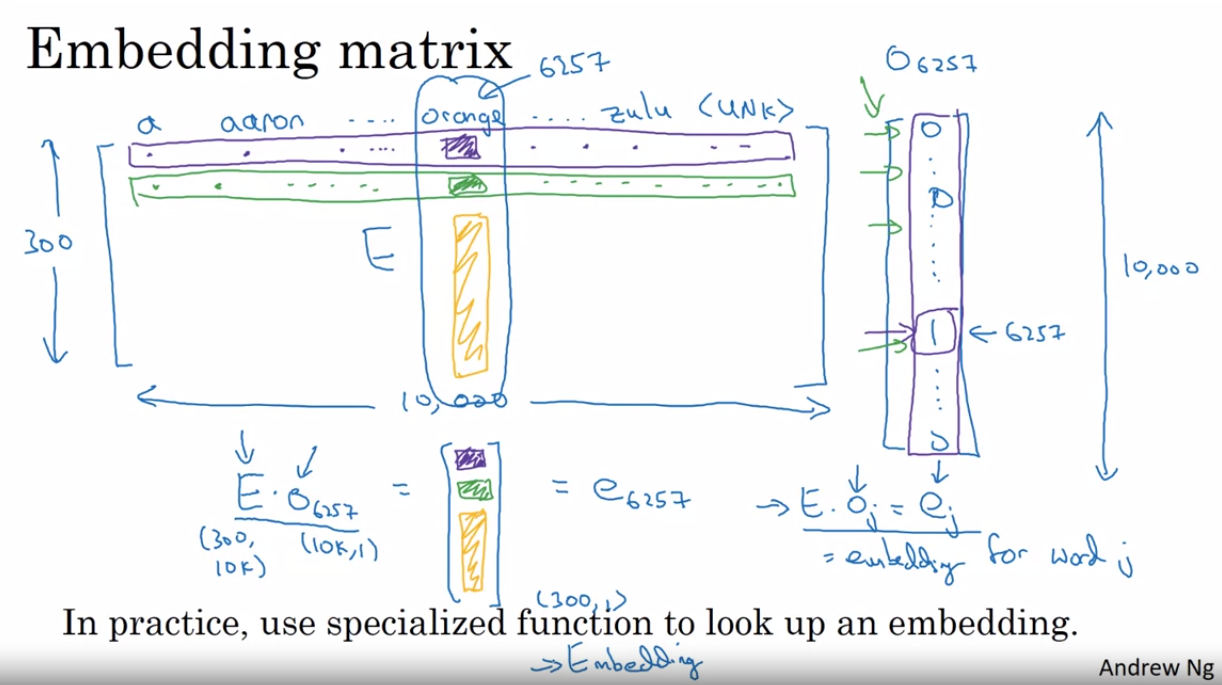 Embedding matrix
6257
O6257
a aaron .... orange .... zulu <UNK>
300
E
10,000
0
0
1 ← 6257
0
10,000
E · O6257 = [ ] = e6257
(300, 10K) (10K,1)
(300,1)
→ E · Oj = ej
= embedding for word j
In practice, use specialized function to look up an embedding.
→ Embedding
Andrew Ng